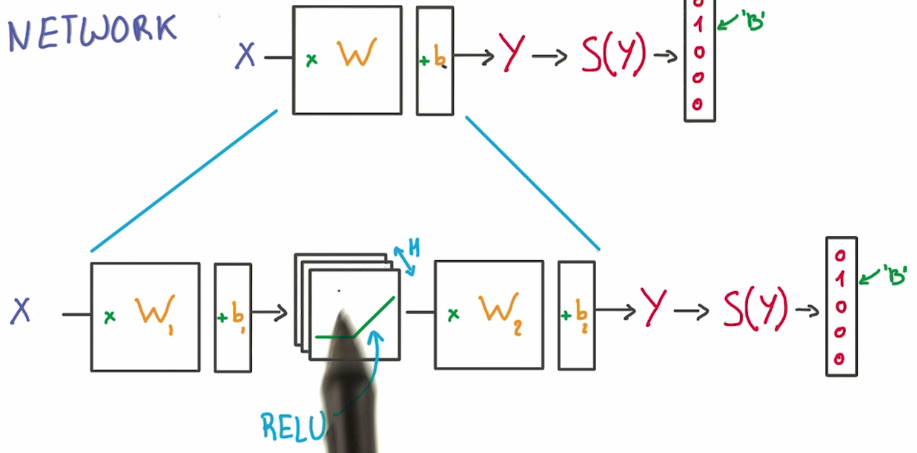 NETWORK
X × W + b → Y → S(Y) →
1 0 0 0
'B'
X × W₁ + b₁ → M × W₂ + b₂ → Y → S(Y) →
0 1 0 0 0
'B'
RELU